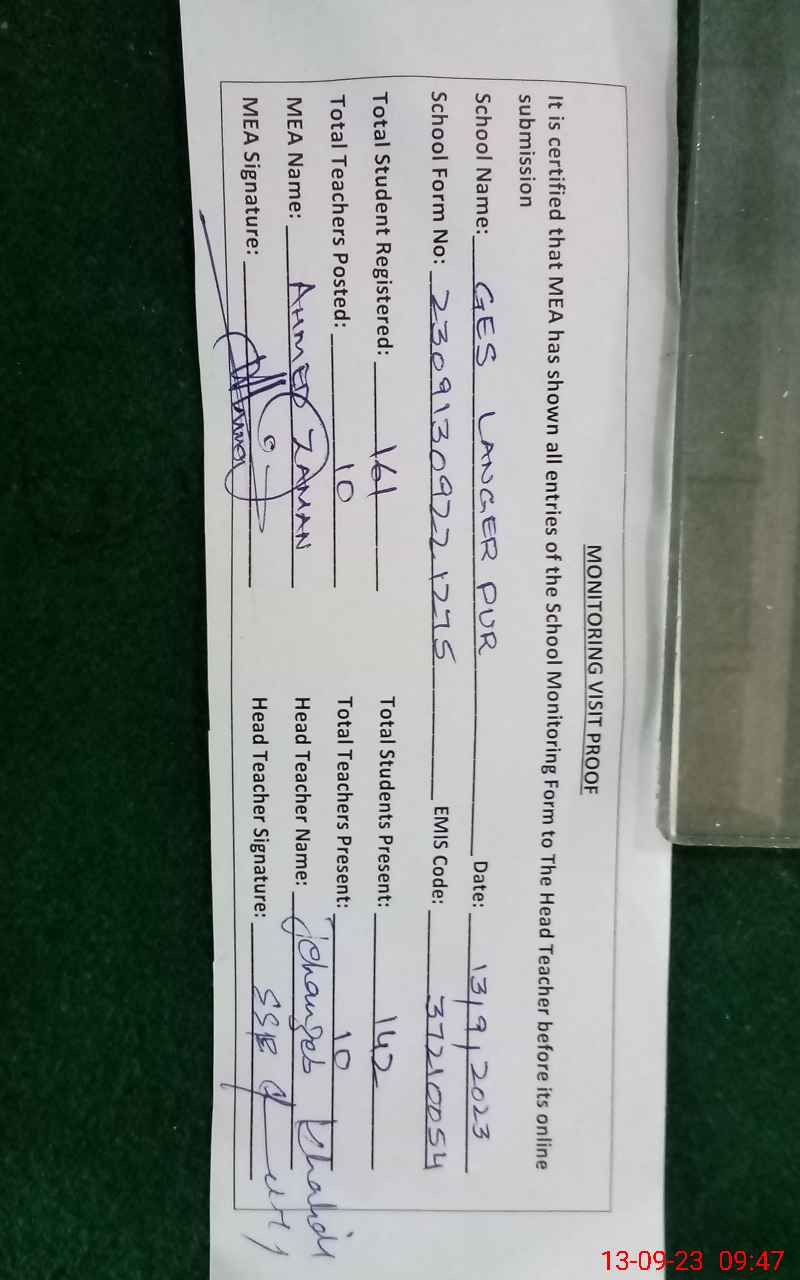 MONITORING VISIT PROOF
It is certified that MEA has shown all entries of the School Monitoring Form to The Head Teacher before its online
submission
School Name: GES LANGER PUR Date: 13/9/2023
School Form No: 23091309221275 EMIS Code: 37210054
Total Student Registered: 161 Total Students Present: 142
Total Teachers Posted: 10 Total Teachers Present: 10
MEA Name: AHMED ZAMAN Head Teacher Name: Khalid
MEA Signature: Head Teacher Signature:
13-09-23 09:47